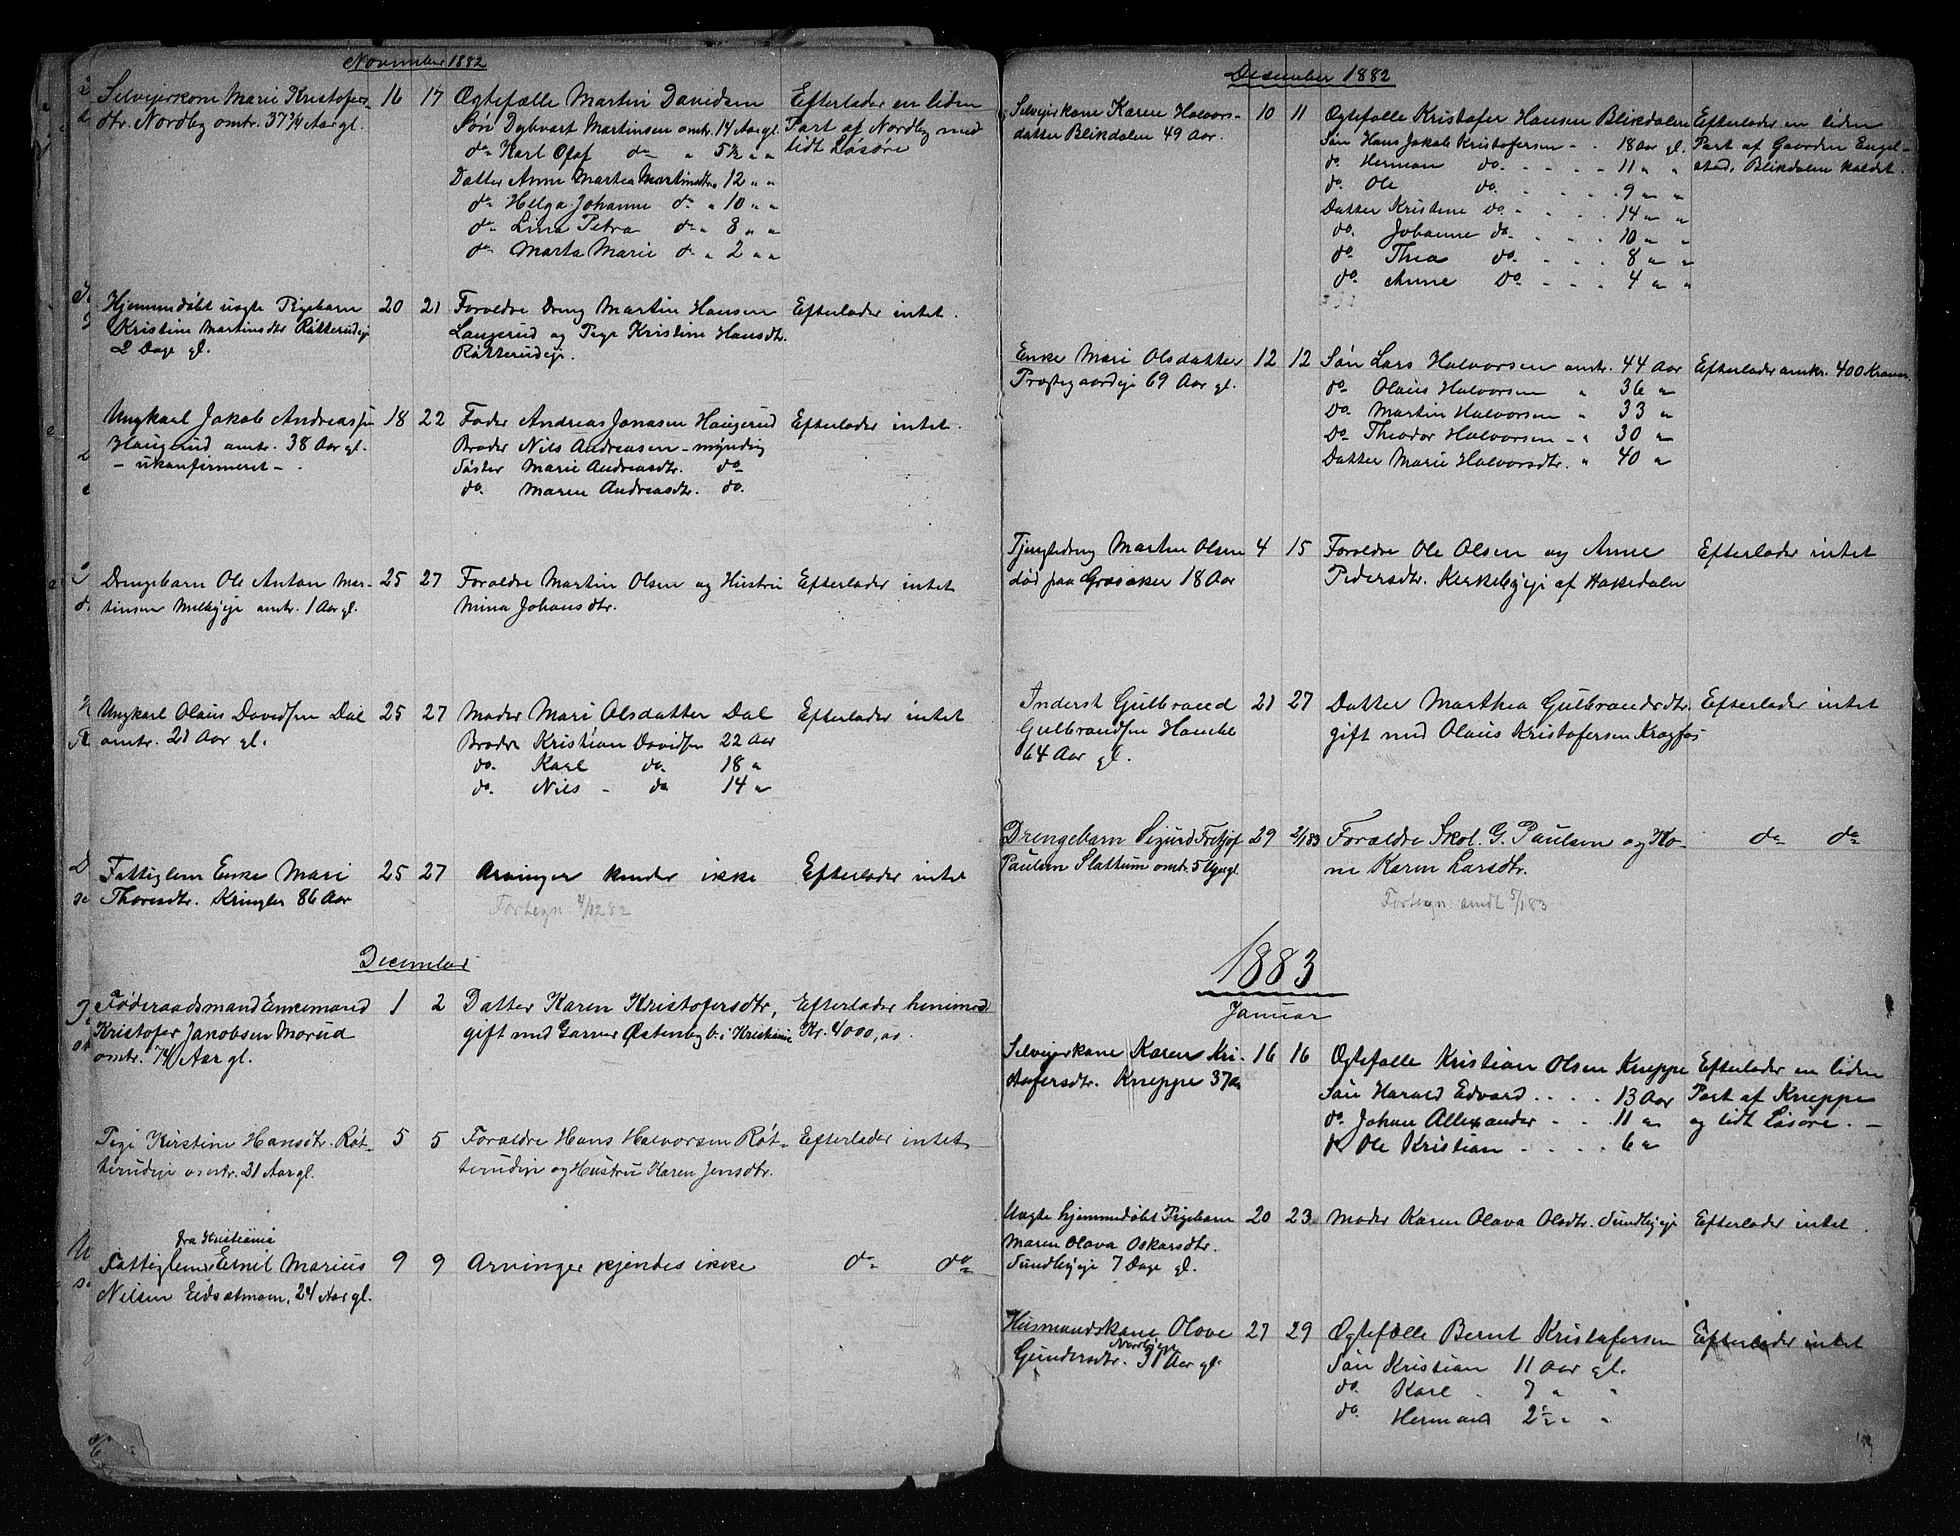 November 1882
Selveierkone Marie Kristofer- 16 17 Ægtefælle Martin Davidsen Efterlader en liden
dtr. Nordby omtr. 37 3/4 Aar gl. Søn Dybvart Martinsen omtr. 14 Aar gl. Part af Nordby med
do Karl Olaf do " 5 1/2 " " lidt Løsøre
Datter Anne Martea Martinsdtr " 12 " "
do Helga Johanne do " 10 " "
do Lina Petra do " 8 " "
do Marta Marie do " 2 " "
Hjemmedøbt uægte Pigebarn 20 21 Forældre Dreng Martin Hansen Efterlader intet.
Kristine Martinsdtr Røtterudeje Langerud og Pige Kristine Hansdtr.
2 Dage gl. Røtterudeje.
Ungkarl Jakob Andreassen 18 22 Fader Andreas Jonasen Haugerud Efterlader intet.
Haugerud omtr. 38 Aar gl. Broder Nils Andreasen - myndig
- ukonfirmeret - Søster Marie Andreasdtr. do
do. Maren Andreasdtr. do.
Drengebarn Ole Anton Mar- 25 27 Forældre Martin Olsen og Hustru Efterlader intet
tinsen omtr. 1 Aar gl. Mina Johansdtr.
Ungkarl Olaus Davidsen Dal 25 27 Moder Mari Olsdatter Dal Efterlader intet
omtr. 21 Aar gl. Brødre Kristian Davidsen 22 Aar
do. Karl do. 18 "
do. Nils - do 14 "
Fattiglem Enke Mari 25 27 Arvinger kendes ikke Efterlader intet
Thoresdtr. Kringler 86 Aar Fortegn. 4/12 82
December
Føderaadsmand Enkemand 1 2 Datter Karen Kristofersdtr, Efterlader henimod
Kristofer Jakobsen Morud gift med Garver Østenby b. i Kristiania Kr. 4000,00.
omtr. 74 Aar gl.
Pige Kirstine Hansdtr. Røt- 5 5 Forældre Hans Halvorsen Røt- Efterlader intet
terudeje omtr. 21 Aar gl. terudeje og Hustru Karen Jensdtr.
fra Kristiania
Fattiglem Emil Marius 9 9 Arvinger kjendes ikke do do
Nilsen Eidsatmoen, 24 Aar gl.
Desember 1882
Selveierkone Karen Halvors- 10 11 Ægtefælle Kristofer Hansen Blikdalen Efterlader en liden
datter Blikdalen 49 Aar. Søn Hans Jakob Kristofersen - . 18 Aar gl. Part af Gaarden Engel-
do. Herman do. . . . . 11 " " stad, Blikdalen kaldet.
do. Ole do. . . . . 9 " "
Datter Kristine do. . . . 14 " "
do. Johanne do. . . . 10 " "
do. Thea do. . . . 8 " "
do. Anne do. . . . 4 " "
Enke Mari Olsdatter 12 12 Søn Lars Halvorsen omtr. 44 Aar Efterlader omkr. 400 Kroner.
Præstegaardeje 69 Aar gl. do. Olaus Halvorsen " 36 "
Do. Martin Halvorsen " 33 "
Do Theodor Halvorsen - " 30 "
Datter Marie Halvorsdtr. " 40 "
Tjenestedreng Martin Olsen 4 15 Forældre Ole Olsen og Anne Efterlader intet
død paa Grosaker 18 Aar Pedersdtr. Kirkebyeje af Hakedalen
Inderst Gulbrand 21 27 Datter Marthea Gulbrandsdtr. Efterlader intet
Gulbrandsen 64 Aar gl. gift med Olaus Kristofersen Kragfos
Drengebarn Sigurd Fretjof 29 2/1 83 Forældre Skol. G. Paulsen og Ko- do do
Paulsen Slattum omtr. 5 Uger gl. ne Karen Larsdtr.
Fortegn. sendt 5/1 83
1883
Januar
Selveierkone Karen Kri- 16 16 Ægtefælle Kristian Olsen Kneppe Efterlader en liden
stofersdtr. Kneppe 37 Aar Søn Harald Edvard . . . . 13 Aar Part af Kneppe
do. Johan Allexander . . 11 " og lidt Løsøre. -
do Ole Kristian . . . . 6 "
Uægte hjemmedøbt Pigebarn 20 23 Moder Karen Olava Olsdtr. Sundbyeje Efterlader intet.
Maren Olava Oskarsdtr.
Sundbyeje 7 Dage gl.
Husmandskone Olave 27 29 Ægtefælle Bernt Kristofersen Efterlader intet
Gundersdtr. 31 Aar gl. Søn Kristian 11 Aar gl.
do. Karl . 7 " "
do. Herman 2 1/2 " "